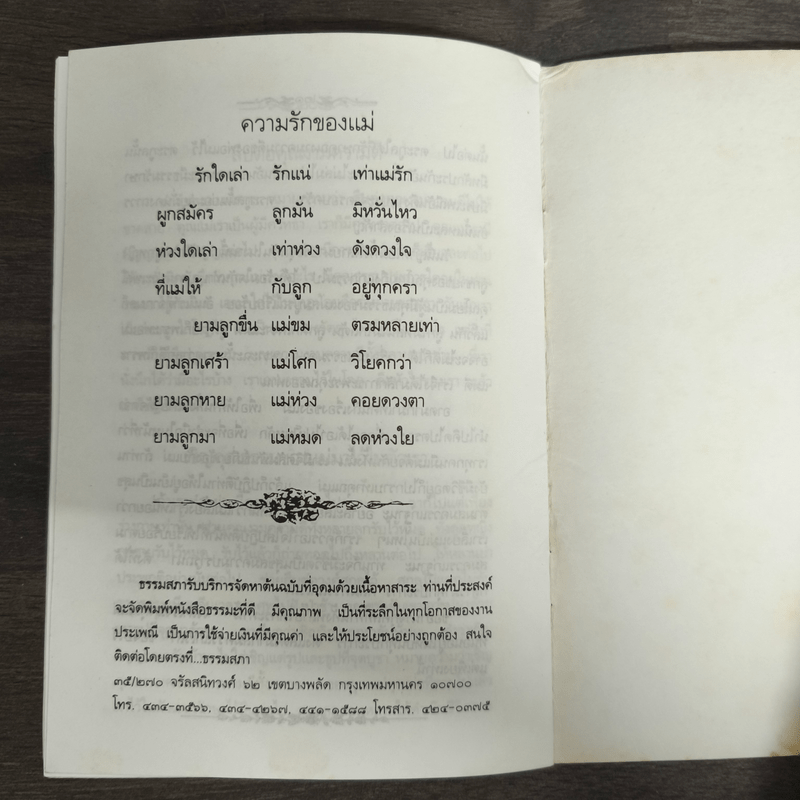 ความรักของแม่
รักใดเล่า รักแน่ เท่าแม่รัก
ผูกสมัคร ลูกมั่น มิหวั่นไหว
ห่วงใดเล่า เท่าห่วง ดังดวงใจ
ที่แม่ให้ กับลูก อยู่ทุกครา
ยามลูกขื่น แม่ขม ตรมหลายเท่า
ยามลูกเศร้า แม่โศก วิโยคกว่า
ยามลูกหาย แม่ห่วง คอยดวงตา
ยามลูกมา แม่หมด ลดห่วงใย
ธรรมสภารับบริการจัดหาต้นฉบับที่อุดมด้วยเนื้อหาสาระ ท่านที่ประสงค์
จะจัดพิมพ์หนังสือธรรมะที่ดี มีคุณภาพ เป็นที่ระลึกในทุกโอกาสของงาน
ประเพณี เป็นการใช้จ่ายเงินที่มีคุณค่า และให้ประโยชน์อย่างถูกต้อง สนใจ
ติดต่อโดยตรงที่...ธรรมสภา
๓๕/๒๗๐ จรัลสนิทวงศ์ ๖๒ เขตบางพลัด กรุงเทพมหานคร ๑๐๗๐๐
โทร. ๔๓๔-๓๕๖๖, ๔๓๔-๔๒๖๗, ๔๔๑-๑๕๘๘ โทรสาร. ๔๒๔-๐๓๗๕